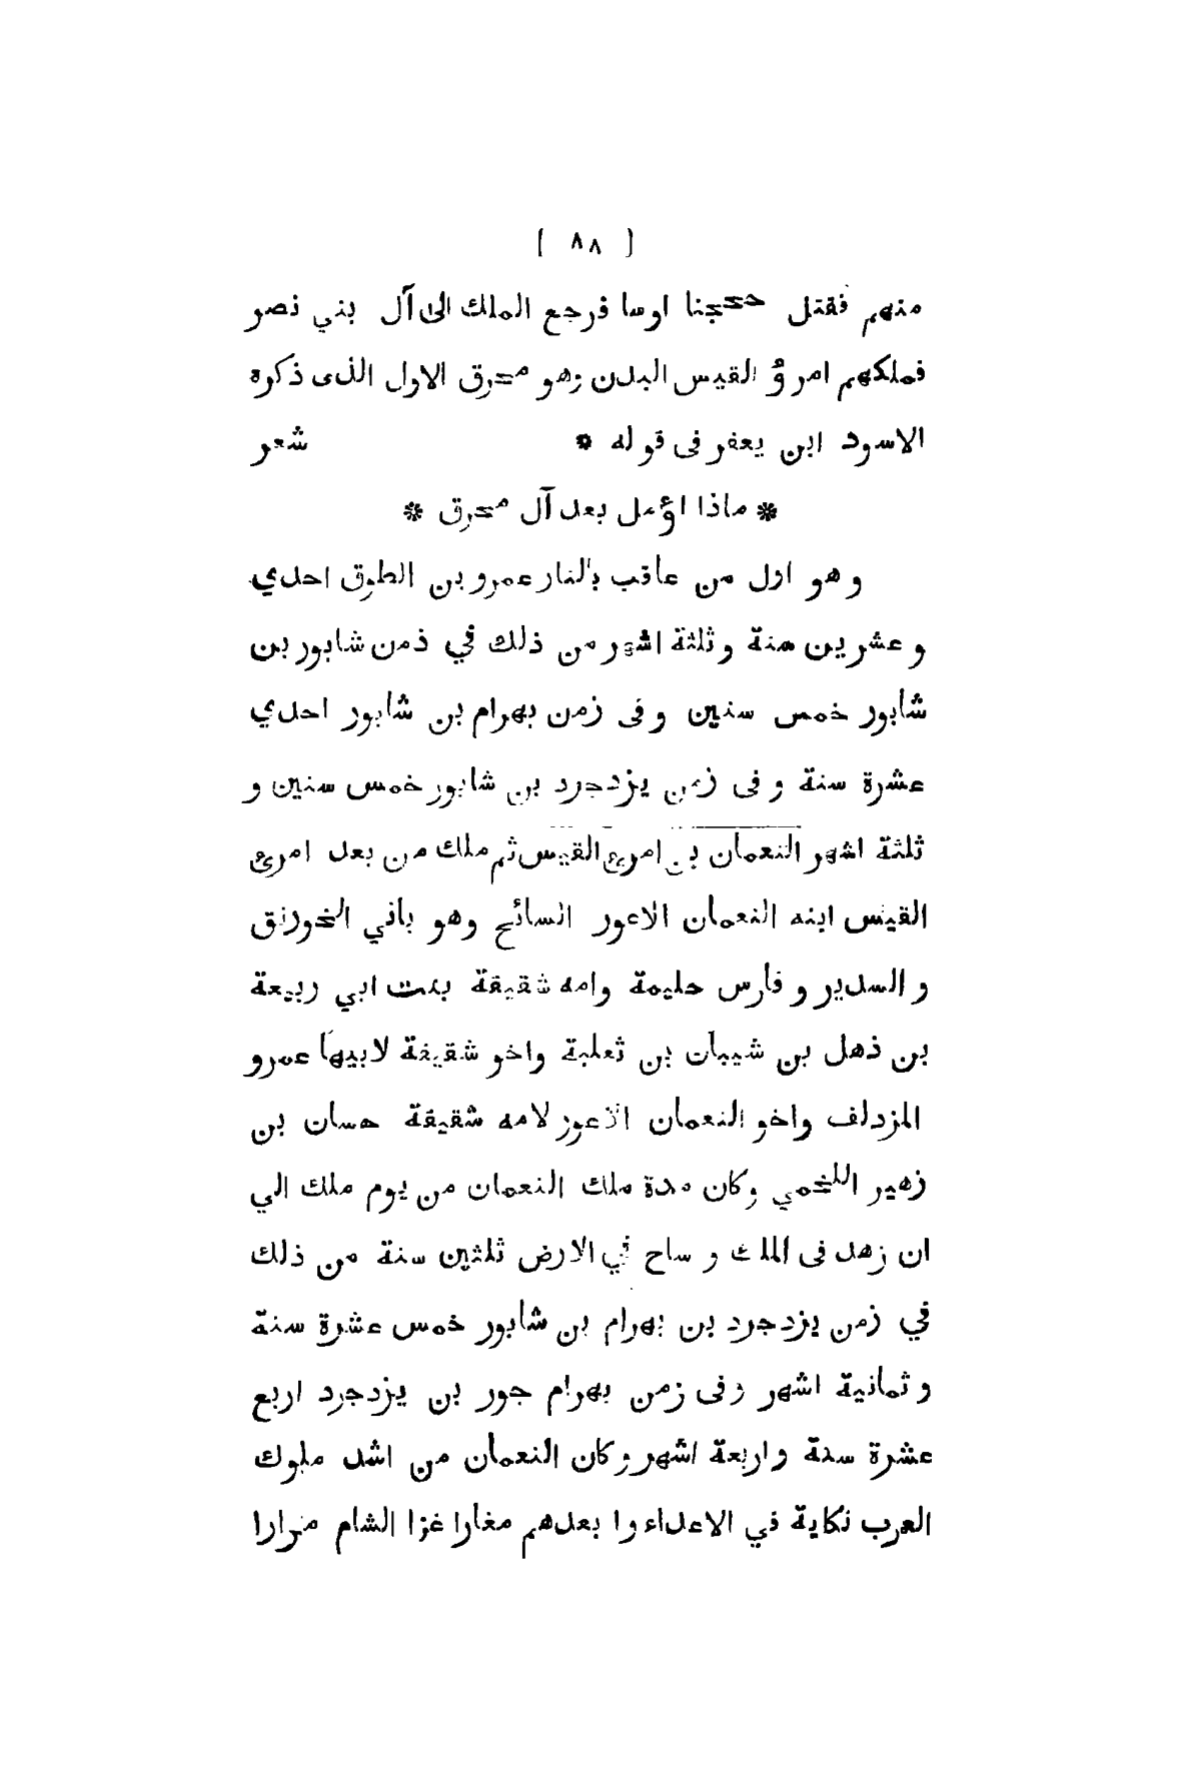 [ ٨٨ ]
منهم فقتل حججنا اوسا فرجع الملك الى آل بني نصر
فملكهم امرؤ القيس البدن وهو محرق الاول الذى ذكره
الاسود ابن يعفر فى قوله * شعر
* ماذا اؤمل بعد آل محرق *
وهو اول من عاقب بالنار عمرو بن الطوق احدي
و عشرين سنة و ثلثة اشهر من ذلك في ذمن شابور بن
شابور خمس سنين و فى زمن بهرام بن شابور احدي
عشرة سنة و فى زمن يزدجرد بن شابور خمس سنين و
ثلثة اشهر النعمان بن امرئ القيس ثم ملك من بعد امرئ
القيس ابنه النعمان الاعور السائح وهو باني الخورنق
و السدير و فارس حليمة وامه شقيقة بنت ابي ربيعة
بن ذهل بن شيبان بن ثعلبة واخو شقيقة لابيها عمرو
المزدلف واخو النعمان الاعور لامه شقيقة حسان بن
زهير اللخمي وكان مدة ملك النعمان من يوم ملك الي
ان زهد فى الملك و ساح في الارض ثلثين سنة من ذلك
في زمن يزدجرد بن بهرام بن شابور خمس عشرة سنة
و ثمانية اشهر وفى زمن بهرام جور بن يزدجرد اربع
عشرة سنة و اربعة اشهر وكان النعمان من اشد ملوك
العرب نكاية في الاعداء وا بعدهم مغارا غزا الشام مرارا